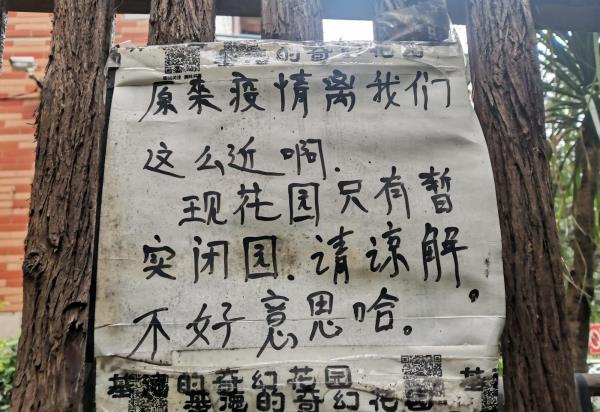 的奇幻花园
原来疫情离我们
这么近啊.
现花园只有暂
实闭园.请谅解.
不好意思哈。
的奇幻花园
的奇幻花园